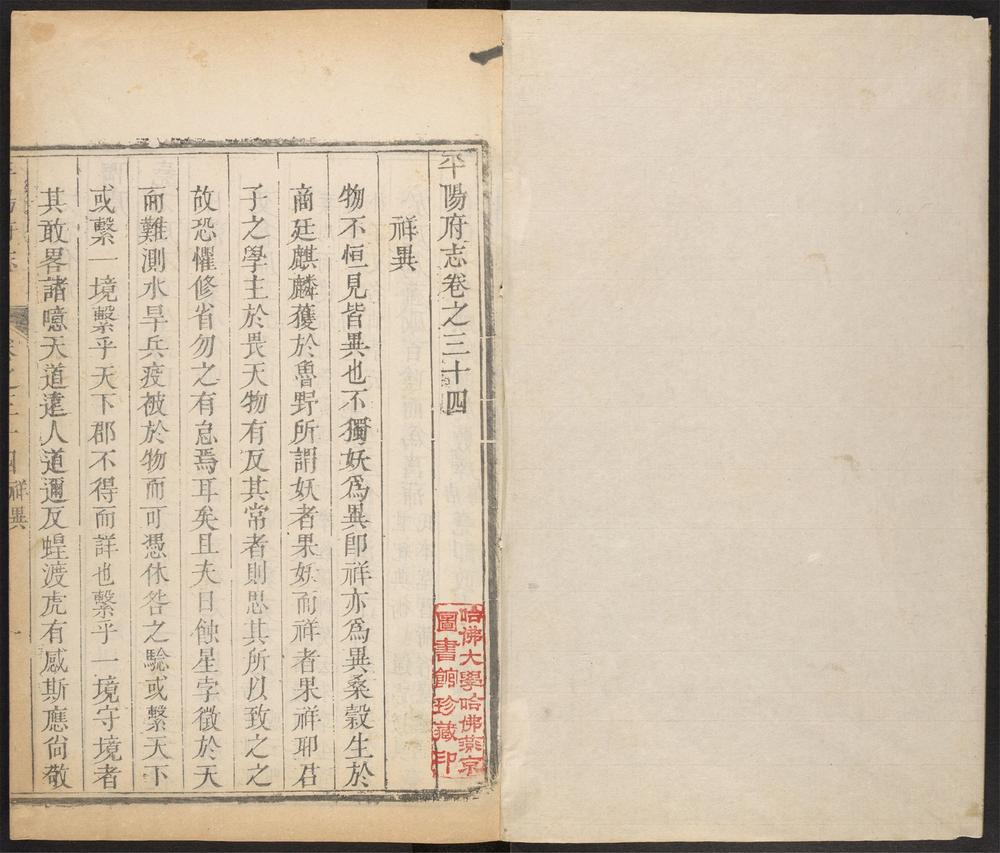 平陽府志卷之三十四
祥異
物不恒見皆異也不獨妖為異即祥亦為異桑穀生於
商廷麒麟獲於魯野所謂妖者果妖而祥者果祥耶君
子之學主於畏天物有反其常者則思其所以致之之
故恐懼修省勿之有怠焉耳矣且夫日蝕星孛徵於天
而難測水旱兵疫被於物而可憑休咎之驗或繫天下
或繫一境繫乎天下郡不得而詳也繫乎一境守境者
其敢畧諸噫天道遠人道邇反蝗渡虎有感斯應尙敬
之三十四 祥異 一
哈佛大學哈佛燕京
圖書館珍藏印